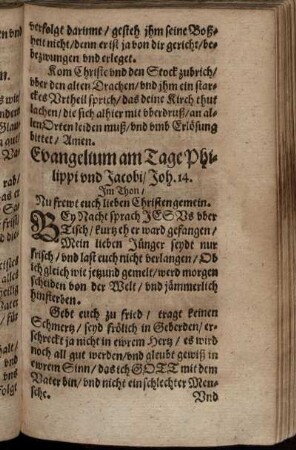 verfolgt darinne / gesteh jhm seine Boß-
heit nicht / denn er ist ja von dir gericht / be-
bezwungen vnd erleget.
Kom Christe vnd den Stock zubrich /
vber den alten Drachen / vnd jhm ein star-
ckes Vrtheil sprich / das deine Kirch thut
lachen / die sich alhier mit vberdruß / an al-
len Orten leiden muß / vnd vmb Erlösung
bittet / Amen.
Evangelium am Tage Phi-
lippi vnd Jacobi / Joh. 14.
Im Thon /
Nu frewt euch lieben Christen gemein.
BEy Nacht sprach JESVS vber
Tisch / kurtz eh er ward gefangen /
Mein lieben Jünger seydt nur
frisch / vnd last euch nicht verlangen / Ob
ich gleich wie jetzund gemelt / werd morgen
scheiden von der Welt / vnd jämmerlich
hinsterben.
Gebt euch zu fried / trage keinen
Schmertz / seyd frölich in Geberden / er-
schreckt ja nicht in ewrem Hertz / es wird
noch all gut werden / vnd gleubt gewiß in
ewrem Sinn / das ich GOTT mit dem
Vater bin / vnd nicht ein schlechter Men-
sche.
Vnd